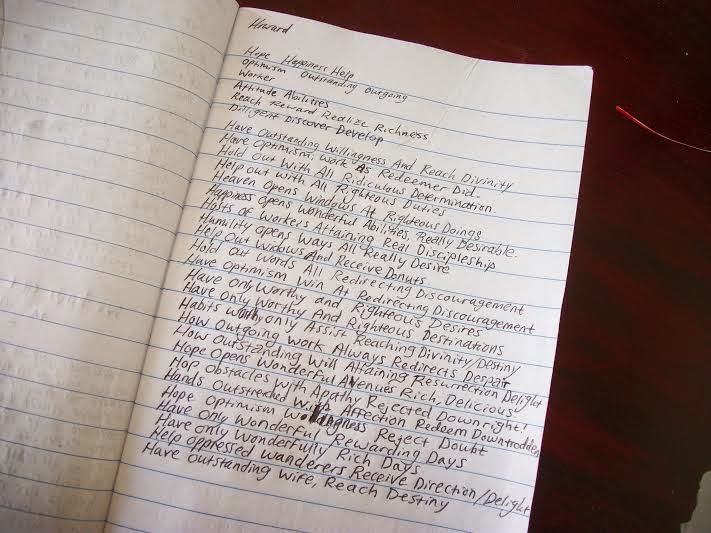 Howard
Hope Happiness Help
Optimism Outstanding Outgoing
Worker
Attitude Abilities
Reach Reward Realize Richness
Diligent Discover Develop
Have Outstanding Willingness And Reach Divinity
Have Optimism, Work As Redeemer Did.
Hold Out With All Ridiculous Determination.
Help out with All Righteous Duties
Heaven Opens Windows At Righteous Doings
Happiness Opens Wonderful Abilities, Really Desirable.
Hosts of Workers Attaining Real Discipleship
Humility Opens Ways All Really Desire
Help Out Widows And Receive Donuts
Hold Out Words All Redirecting Discouragement
Have Optimism Win At Redirecting Discouragement
Have Only Worthy and Righteous Desires
Have Only Worthy And Righteous Destinations
Habits Worth only Assist Reaching Divinity/Destiny
How Outgoing Work Always Redirects Despair
How Outstanding Will Attaining Resurrection Delight
Hope Opens Wonderful Avenues Rich, Delicious
Hop Obstacles With Apathy Rejected Downright!
Hands Outstretched With Affection Redeem Downtrodden
Hope Optimism Reject Doubt
Have Only Wonderful Rewarding Days
Have only Wonderfully Rich Days.
Help oppressed Wanderers Receive Direction/Delight
Have Outstanding Wife, Reach Destiny